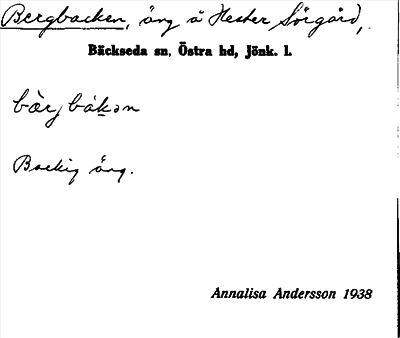 Bergbacken, äng å Hester Sörgård,
Bäckseda sn, Östra hd, Jönk. l.
bàrjbákən
Backig äng.
Annalisa Andersson 1938